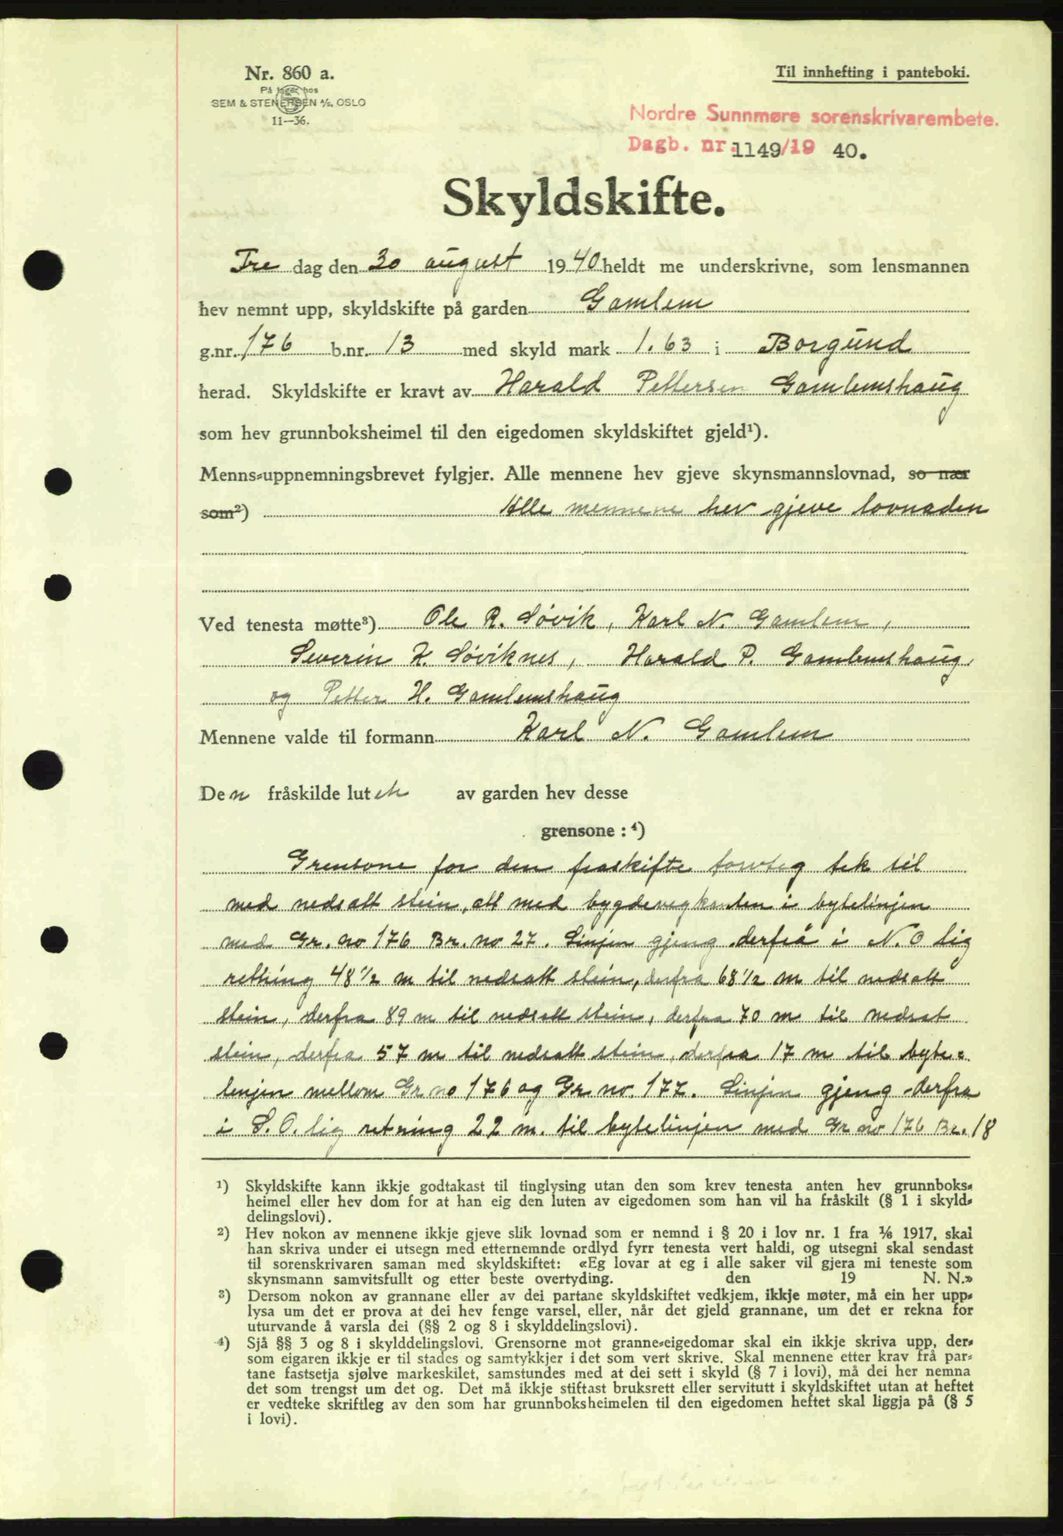 Nr. 860 a.
På lager hos
SEM & STENERSEN A/S, OSLO
11—36.
Til innhefting i panteboki.
Nordre Sunnmøre sorenskrivarembete.
Dagb. nr. 1149/19 40.
Skyldskifte.
Fre dag den 30 august 1940 heldt me underskrivne, som lensmannen
hev nemnt upp, skyldskifte på garden Gamlem
g.nr. 176 b.nr. 13 med skyld mark 1.63 i Borgund
herad. Skyldskifte er kravt av Harald Pettersen Gamlemshaug
som hev grunnboksheimel til den eigedomen skyldskiftet gjeld¹).
Menns-uppnemningsbrevet fylgjer. Alle mennene hev gjeve skynsmannslovnad, so nær
som²) Alle mennene hev gjeve lovnaden
Ved tenesta møtte³) Ole R. Søvik, Karl N. Gamlem,
Severin K. Søviknes, Harald P. Gamlemshaug,
og Petter H. Gamlemshaug
Mennene valde til formann Karl N. Gamlem
Den fråskilde luten av garden hev desse
grensone: ⁴)
Grensone for den fraskifte tek til
med nedsatt stein, att med bygdevegkanten i bytelinjen
med Gr. no 176 Br. no 27. Linjen gjeng derfrå i N.O lig
retning 48 1/2 m til nedsatt stein, derfra 68 1/2 m til nedsatt
stein, derfra 89 m til nedsatt stein, derfra 70 m til nedsat
stein, derfra 57 m til nedsatt stein, derfra 17 m til byte-
linjen mellom Gr. no 176 og Gr. no. 177. Linjen gjeng derfra
i S.O. lig retning 22 m. til bytelinjen med Gr no 176 Br. 18
¹) Skyldskifte kann ikkje godtakast til tinglysing utan den som krev tenesta anten hev grunnboks-
heimel eller hev dom for at han eig den luten av eigedomen som han vil ha fråskilt (§ 1 i skyld-
delingslovi).
²) Hev nokon av mennene ikkje gjeve slik lovnad som er nemnd i § 20 i lov nr. 1 fra 1/6 1917, skal
han skriva under ei utsegn med etternemnde ordlyd fyrr tenesta vert haldi, og utsegni skal sendast
til sorenskrivaren saman med skyldskiftet: «Eg lovar at eg i alle saker vil gjera mi teneste som
skynsmann samvitsfullt og etter beste overtyding. den 19 N. N.»
³) Dersom nokon av grannane eller av dei partane skyldskiftet vedkjem, ikkje møter, må ein her upp-
lysa um det er prova at dei hev fenge varsel, eller, når det gjeld grannane, um det er rekna for
uturvande å varsla dei (§§ 2 og 8 i skylddelingslovi).
⁴) Sjå §§ 3 og 8 i skylddelingslovi. Grensorne mot granne-eigedomar skal ein ikkje skriva upp, der-
som eigaren ikkje er til stades og samtykkjer i det som vert skrive. Skal mennene etter krav frå par-
tane fastsetja sjølve markeskilet, samstundes med at dei sett i skyld (§ 7 i lovi), må dei her nemna
det som trengst um det og. Det må ikkje stiftast bruksrett eller servitutt i skyldskiftet utan at heftet
er vedteke skriftleg av den som har grunnboksheimelen til den eigedomen heftet skal liggja på (§ 5
i lovi).